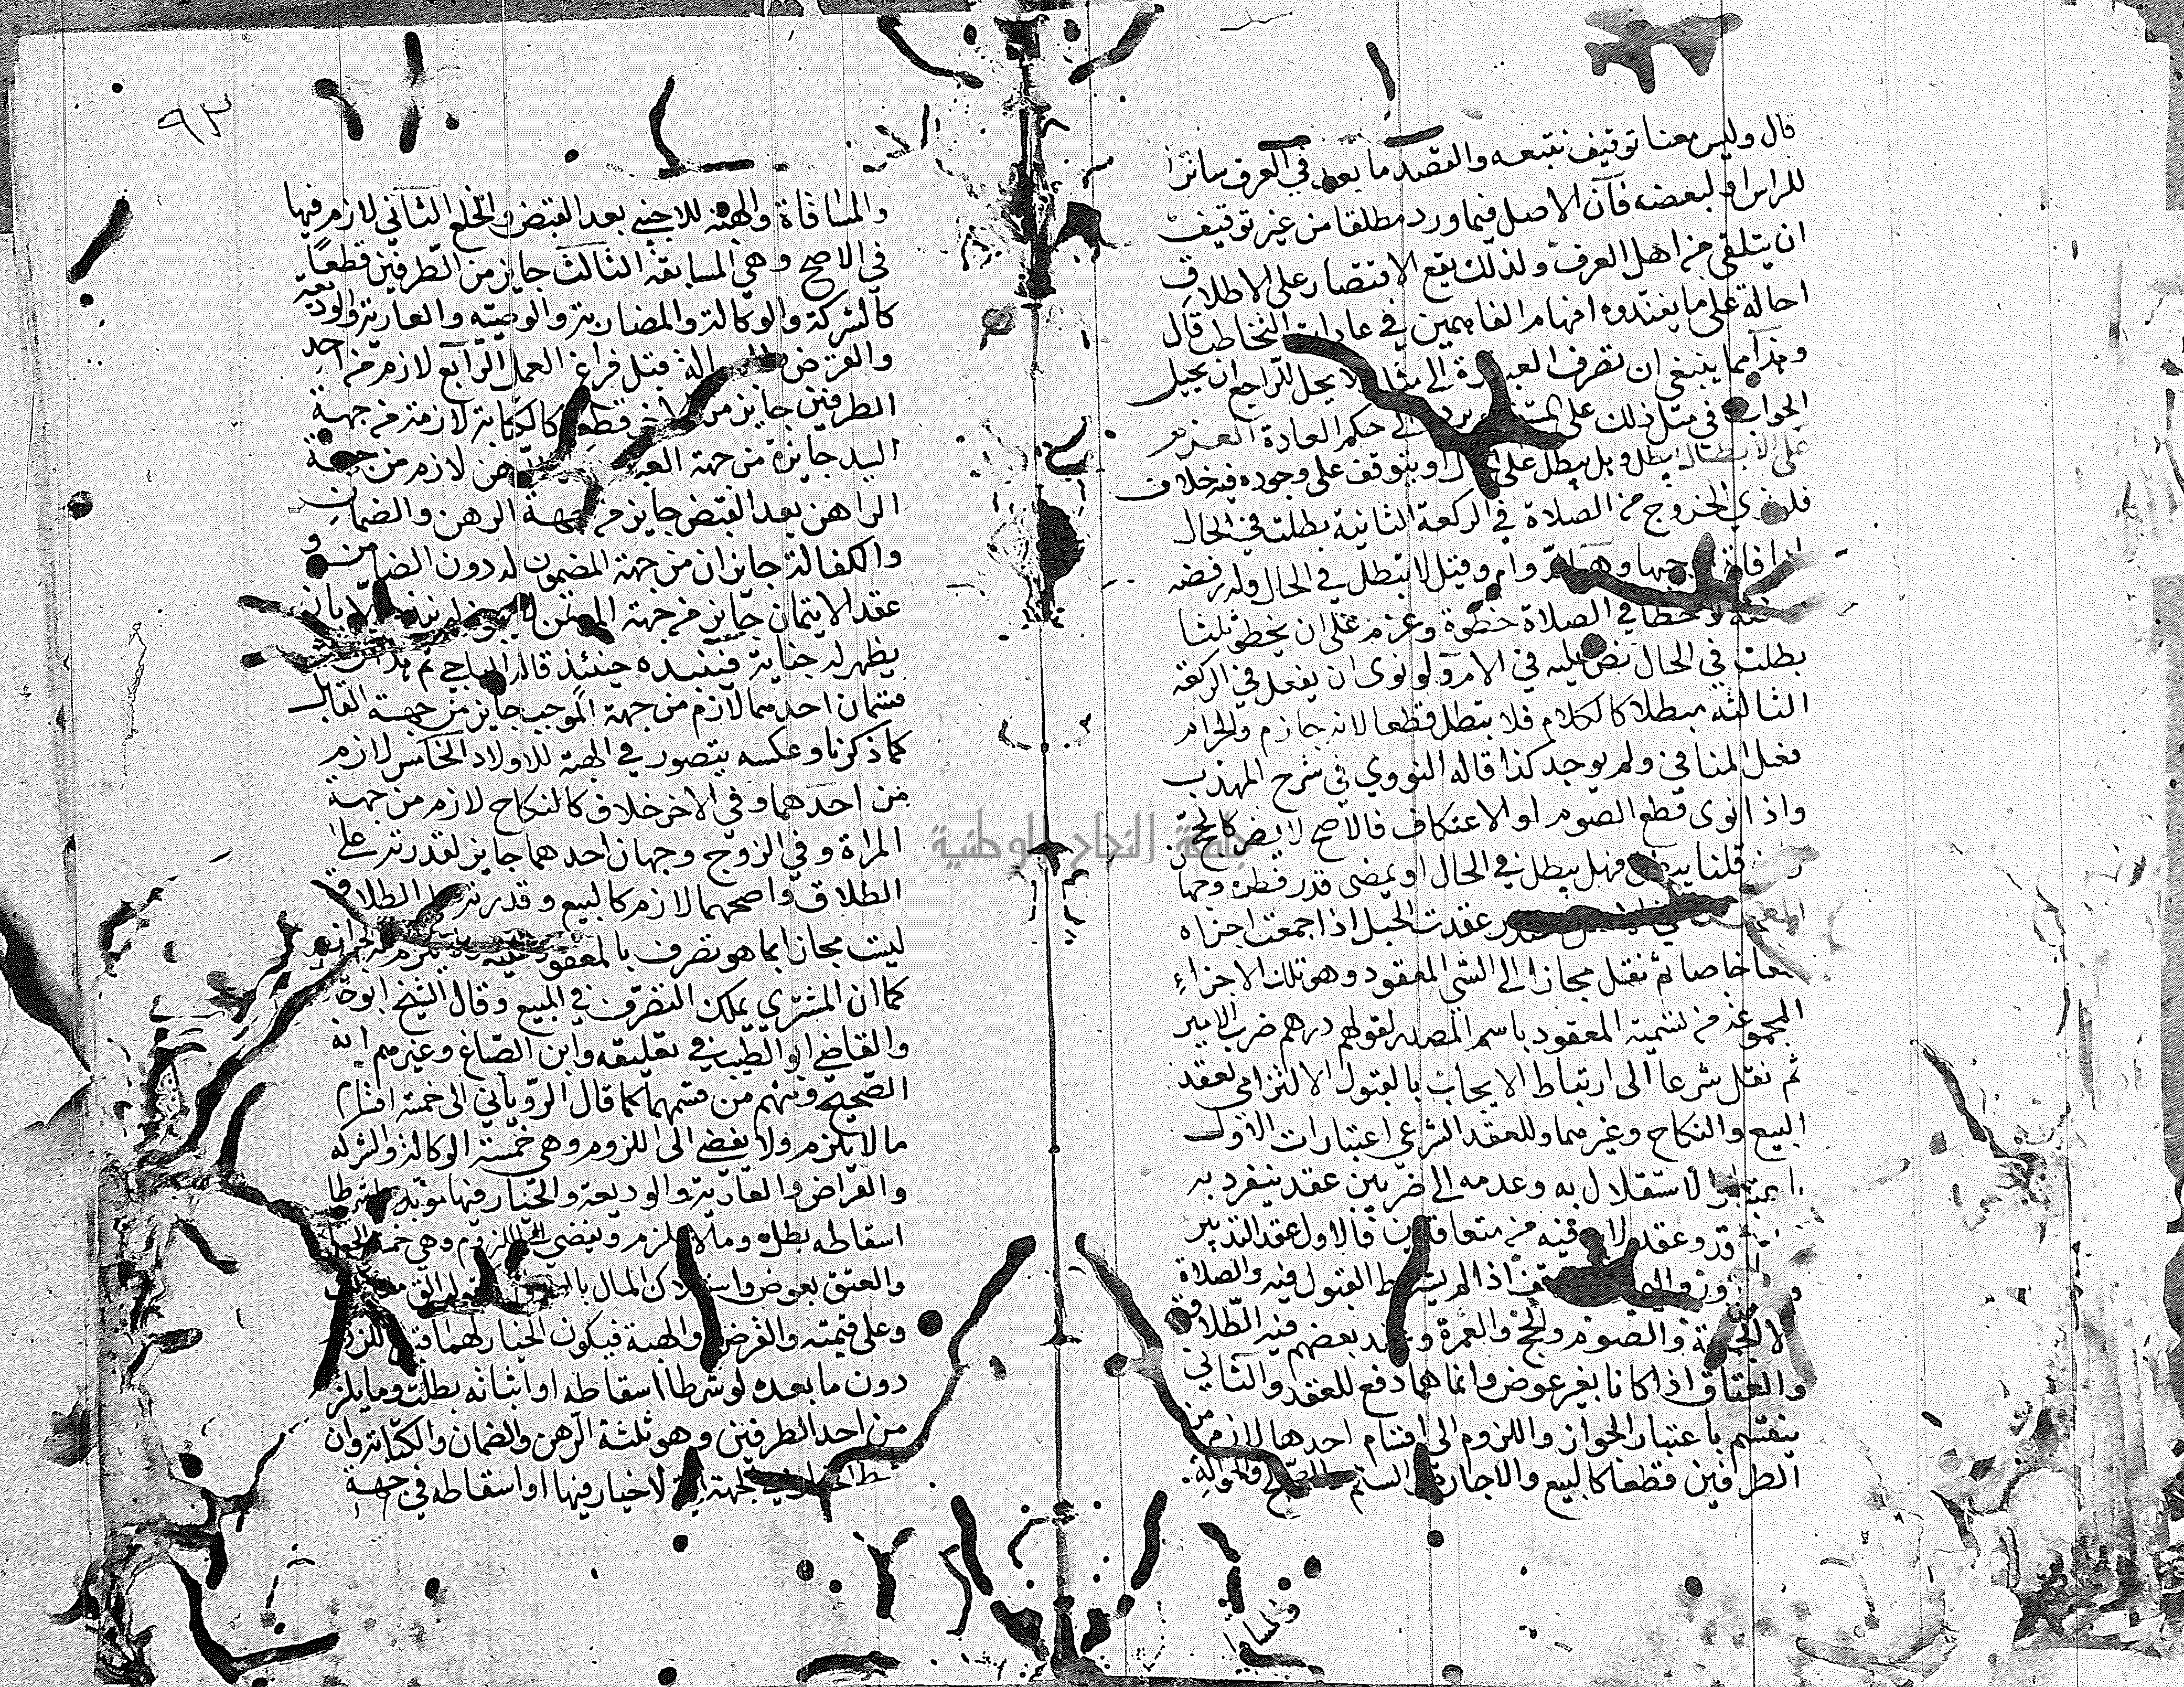 قال وليس معنا توقيف نتبعه والقصد ما يعد في العرف ساترا
للراس او لبعضه فان الاصل فيما ورد مطلقا من غير توقيف
ان يتلقى من اهل العرف ولذلك يقع الاقتصار على الاطلاق
احالة على ما يفتدوه افهام الفاهمين في عادات التخاطب قال
وهذا مما ينبغي ان تصرف العناية الى مثله لا يحل للراجع ان يحيل
الجواب في مثل ذلك على المستفتي يرد الى حكم العادة العزم
على الابطال ابطل وبل يبطل على الحال او يتوقف على وجوده فيه خلاف
فلو نوى الخروج من الصلاة في الركعة الثانية بطلت في الحال
وقيل لا تبطل في الحال وله رفضه
خطا في الصلاة خطوة وعزم على ان يخطو ثلثا
بطلت في الحال نص عليه في الام ولو نوى ان يفعل في الركعة
الثالثه مبطلا كالكلام فلا تبطل قطعا لانه جازم والحرام
فعل المنافي ولم يوجد كذا قاله النووي في شرح المهذب
واذا نوى قطع الصوم او الاعتكاف فالاصح لا يضر كالحج
قلنا يضر فهل يبطل في الحال او بمضي قدر فطره وجها
عقدت الحبل اذا جمعت اجزاه
جمعا خاصا ثم نقل مجازا الى الشي المعقود وهو تلك الاجزاء
المجموعة من تسمية المعقود باسم المصدر لقولهم درهم ضرب الامير
ثم نقل شرعا الى ارتباط الايجاب بالقبول الالتزامي لعقد
البيع والنكاح وغيرهما وللعقد الشرعي اعتبارات الاول
اعتبار الاستقلال به وعدمه الى ضربين عقد ينفرد به
العاقد وعقد لا بد فيه من متعاقدين فالاول عقد التدبير
والنذور واليمين والوقف اذا لم يشترط القبول فيه والصلاة
الا الجمعة والصوم والحج والعمرة وعند بعضهم فيه الطلاق
والعتاق اذا كانا بغير عوض وانما هما دفع للعقد والثاني
ينقسم باعتبار الجواز واللزوم الى اقسام احدها لازم من
الطرفين قطعا كالبيع والاجارة والسلم والصلح والحوالة
والمساقاة
٩٣
والمساقاة والهبة للاجنبي بعد القبض والخلع الثاني لازم فيها
في الاصح وهي المسابقة الثالث جايز من الطرفين قطعا
كالشركة والوكالة والمضاربة والوصيه والعارية والوديعة
والقرض والجعالة قبل فراغ العمل الرابع لازم من احد
الطرفين جايز من الاخر قطعا كالكتابة لازمة من جهة
السيد جايزة من جهة العبد والرهن لازم من جهة
الراهن بعد القبض جايز من جهة الرهن والضمان
والكفالة جايزان من جهة المضمون له دون الضامن و
عقد الايتمان جايز من جهة المؤتمن
يظهر له جناية فينبذه حينئذ قاله الباجي ثم هذا
قسمان احدهما لازم من جهة الموجب جايز من جهة القابل
كما ذكرنا وعكسه يتصور في الهبة للاولاد الخامس لازم
من احدهما وفي الاخر خلاف كالنكاح لازم من جهة
المراة وفي الزوج وجهان احدهما جايز لقدرته على
الطلاق واصحهما لازم كالبيع وقدرته على الطلاق
ليست مجازا انما هو تصرف بالمعقود عليه
كما ان المشتري يملك التصرف في المبيع وقال الشيخ ابو حا
والقاضي ابو الطيب في تعليقه وابن الصباغ وغيرهم انه
الصحيح ومنهم من قسمها كما قال الروياني الى خمسة اقسام
ما لا يلزم ولا يفضي الى اللزوم وهي خمسة الوكالة والشركه
والقراض والعارية والوديعة والخيار فيها مؤبد بلا شرطا
اسقاطه بطل وما لا يلزم ويفضي الى اللزوم وهي خمسة الجعالة
والعتق بعوض واستهلاك المال بالضمان كقوله الق متاعك
وعلي قيمته والقرض والهبة فيكون الخيار لهما قبل اللزوم
دون ما بعده لو شرطا اسقاطه او اثباته بطلت وما يلزم
من احد الطرفين وهو ثلثة الرهن والضمان والكتابة وان
شرط الخيار في الجهة التي لا خيار فيها او اسقاطه في جهة